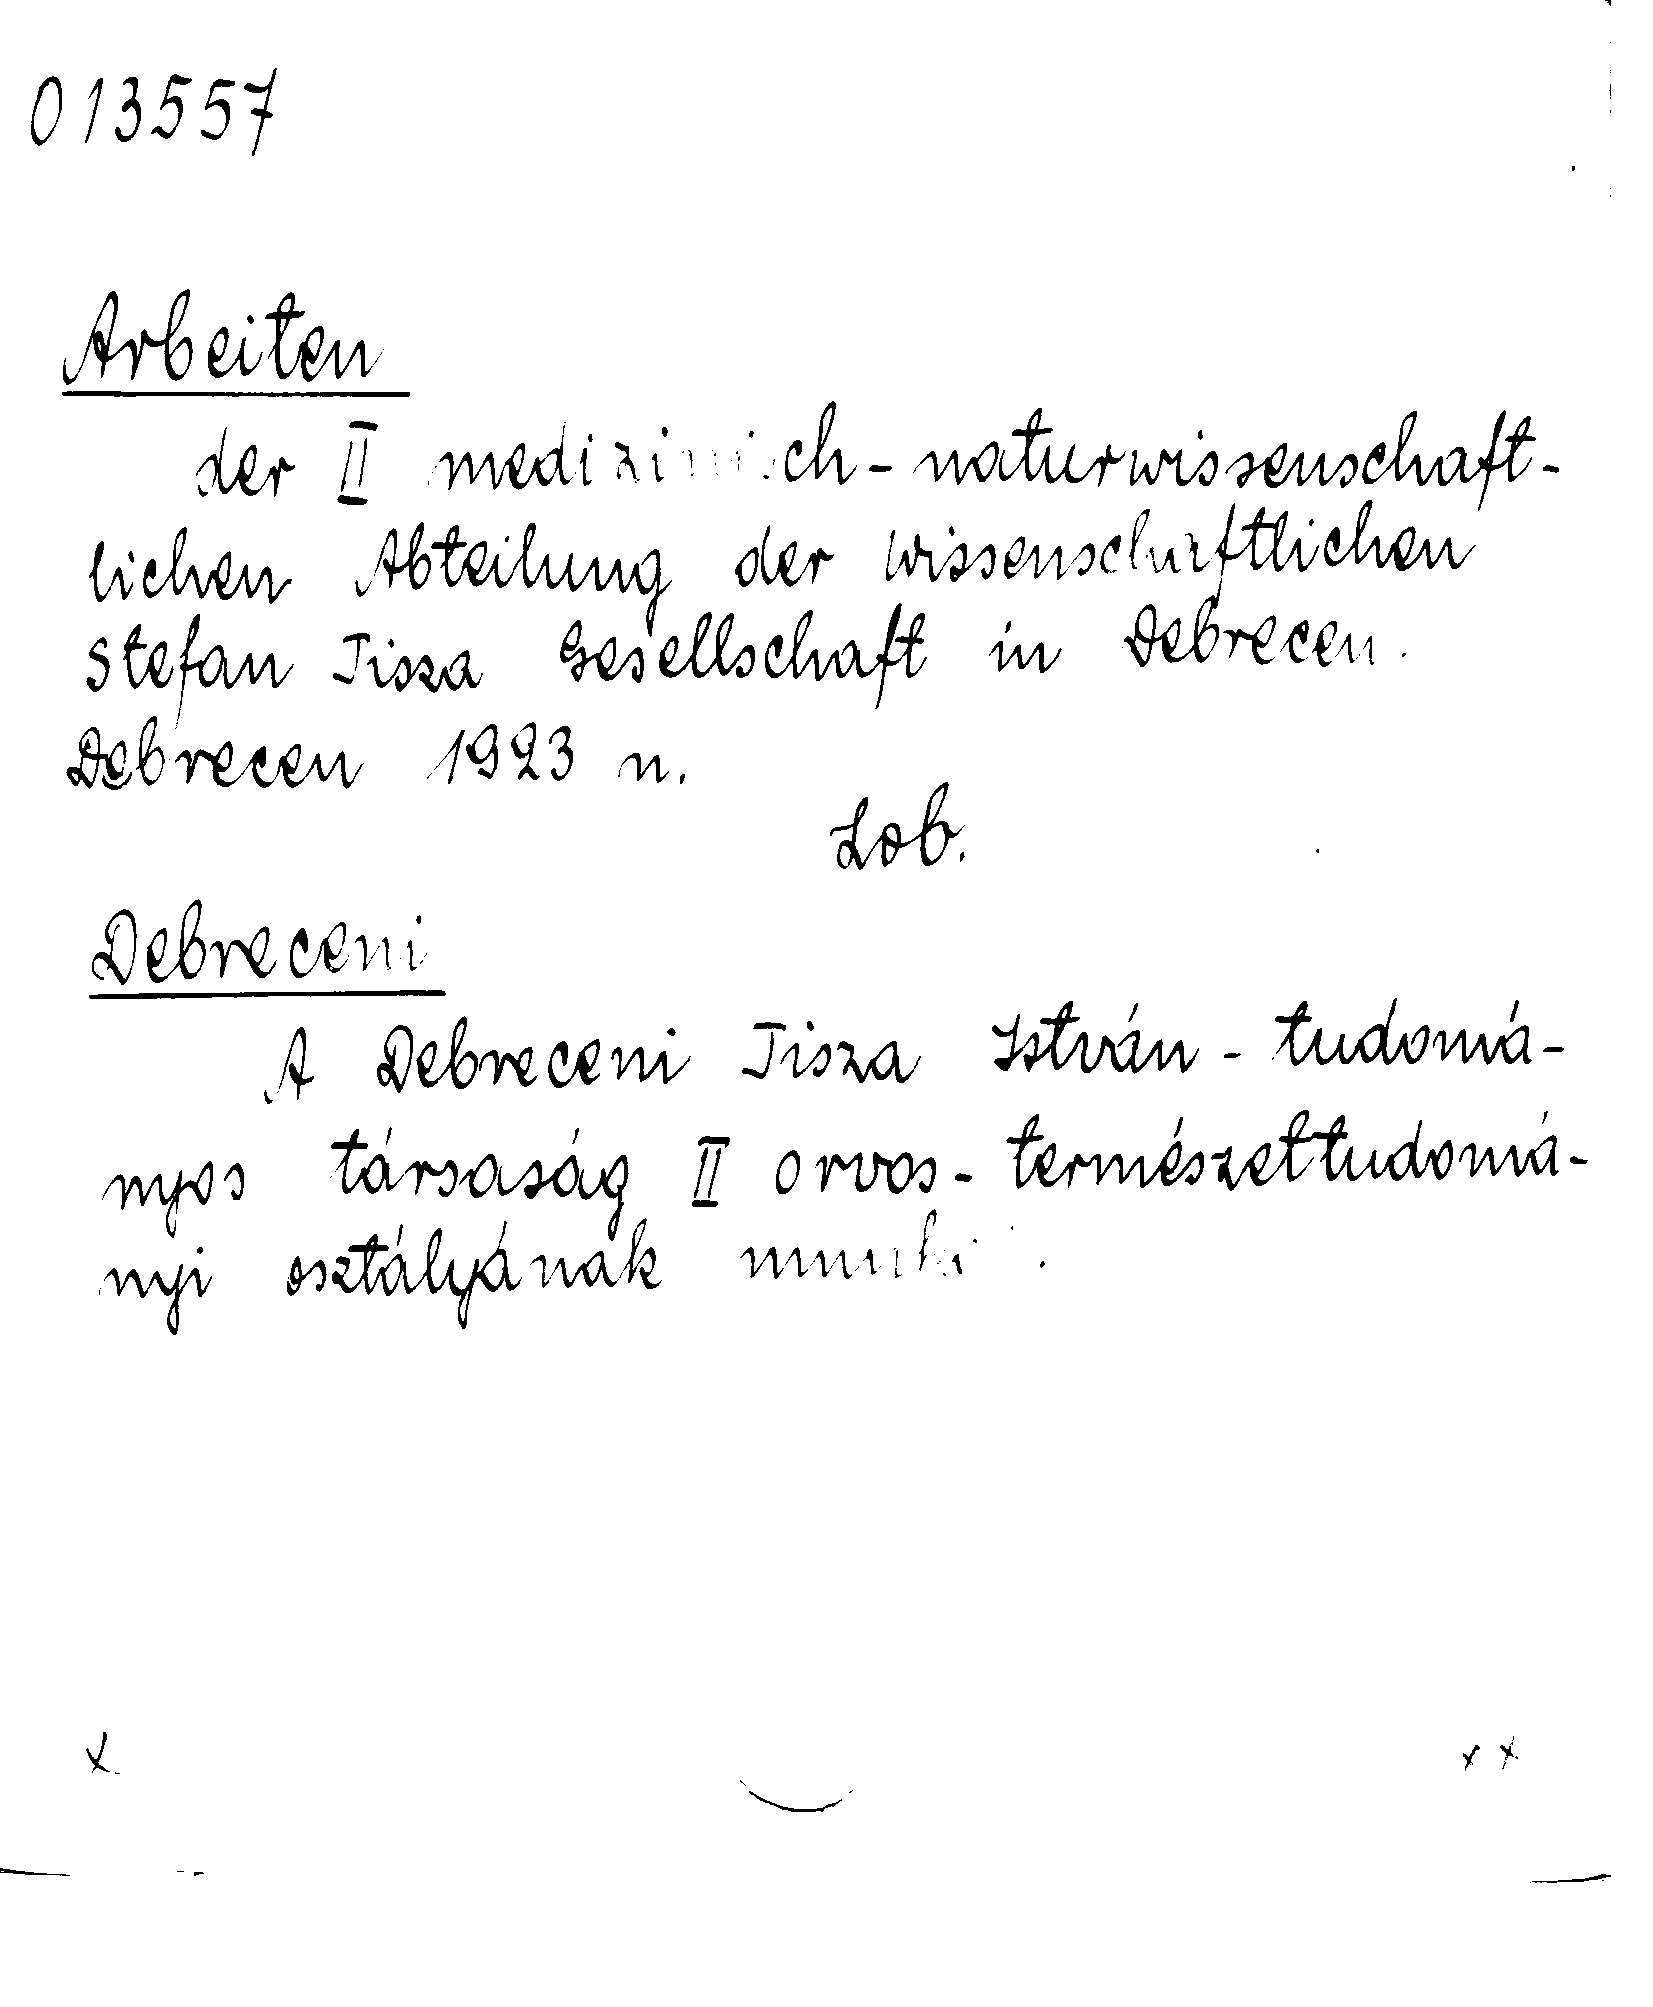 013557
Arbeiten
der II medizinisch-naturwissenschaft-
lichen Abteilung der wissenschaftlichen
Stefan Tisza Gesellschaft in Debrecen.
Debrecen 1923 n.
Zob.
Debreceni
A Debreceni Tisza István-tudomá-
nyos társaság II orvos-természettudomá-
nyi osztályának
x
x x